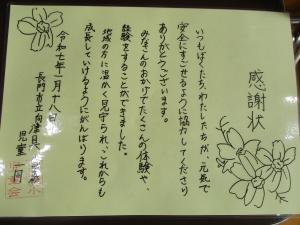 感謝状
いつもぼくたち、わたしたちが、元気で
安全にすごせるように協力してくださり
ありがとうございます。
みなさんのおかげでたくさんの体験や、
経験をすることができました。
地域の方に温かく見守られ、これからも
成長していけるようにがんばります。
令和七年二月十八日
長門市立向津具小
児童一同